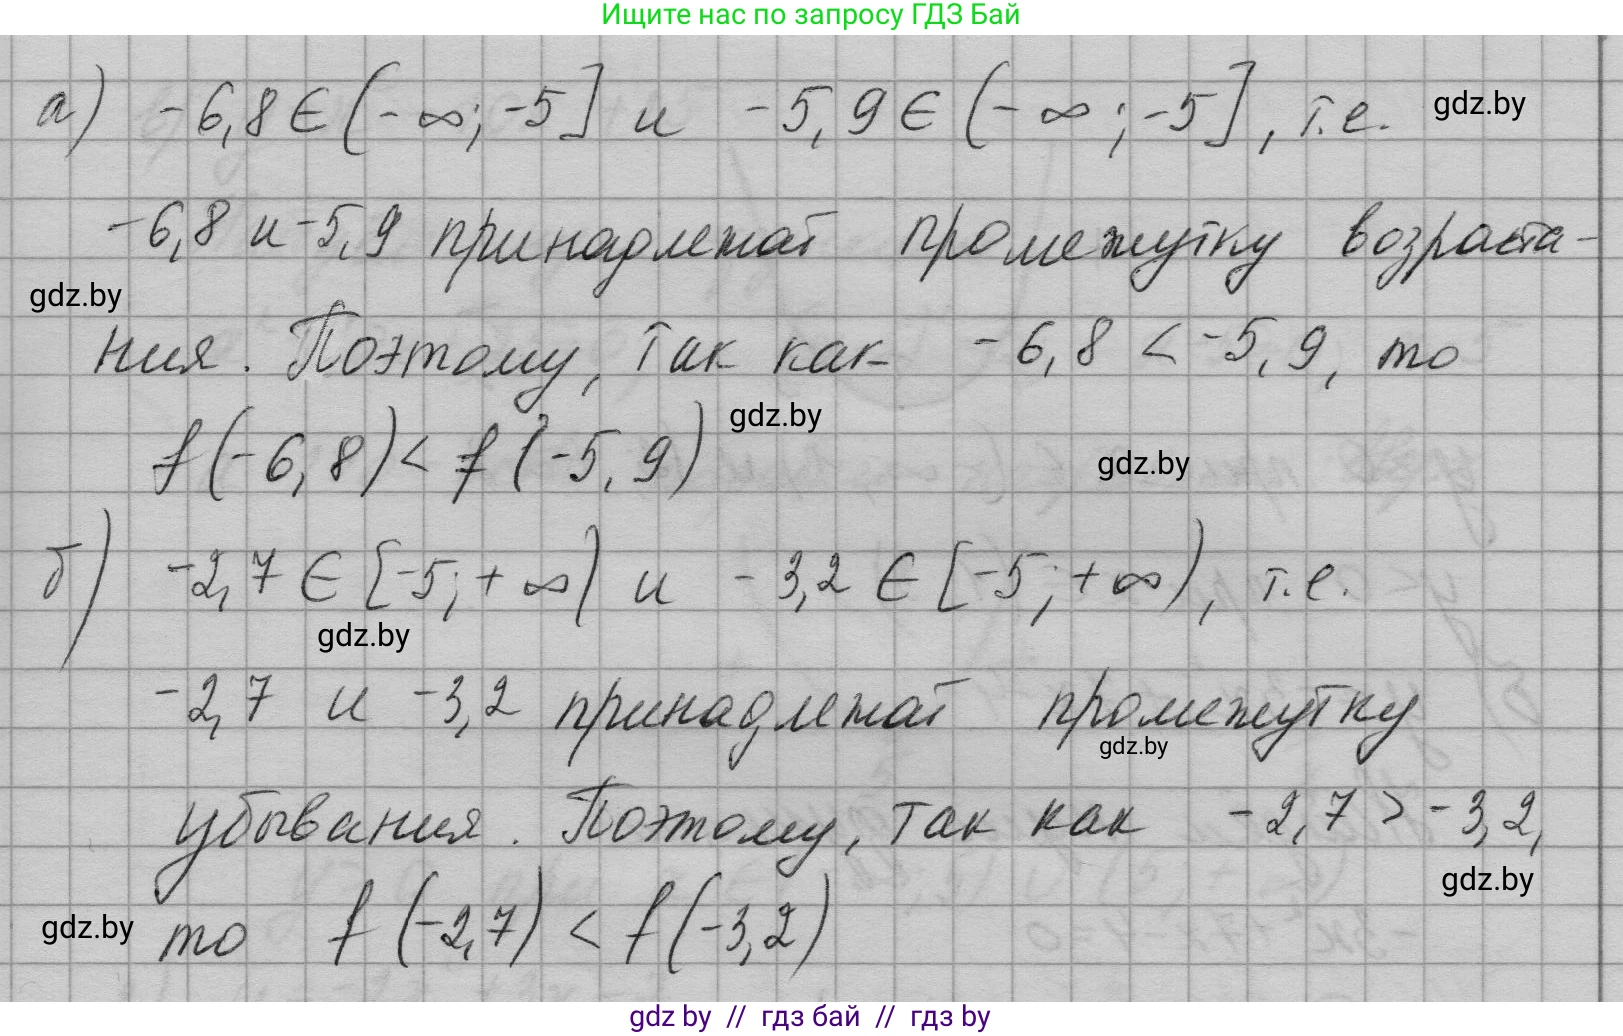 Ищите нас по запросу ГДЗ Бай
а) -6,8 ∈ (-∞; -5] и -5,9 ∈ (-∞; -5], т.е. gdz.by
-6,8 и -5,9 принадлежат промежутку возраста-
gdz.by
ния. Поэтому, так как -6,8 < -5,9, то
gdz.by
f(-6,8) < f(-5,9)
gdz.by
б) -2,7 ∈ [-5; +∞) и -3,2 ∈ [-5; +∞), т.е.
gdz.by
-2,7 и -3,2 принадлежат промежутку
gdz.by
убывания. Поэтому, так как -2,7 > -3,2,
gdz.by
gdz.by то f(-2,7) < f(-3,2)
gdz by // гдз бай // гдз by